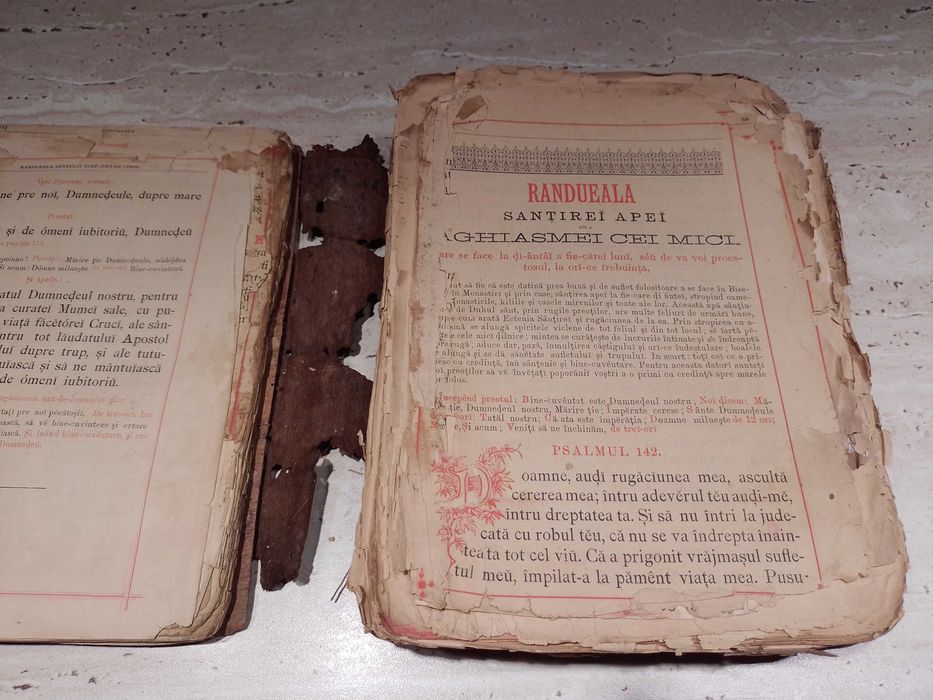 RANDUEALA SÂNTULUI
ne pre noĭ, Dumneḑeule, dupre mare
Preotul:
și de ómenĭ iubitoriŭ, Dumneḑeŭ
pagina 115.
Mărire ție Dumneḑeule, nădejdea
Și acum: Dómne miluește Bine-cuvinteză.
Și Apolis:
atul Dumneḑeul nostru, pentru
a curateĭ Mumeĭ sale, cu pu-
viață făcĕtóreĭ Crucĭ, ale sân-
ntru tot lăudatuluĭ Apostol
luĭ dupre trup, și ale tutu-
uiască și să ne mântuiască
de ómenĭ iubitoriŭ.
rugăciunea unt-de-lemnuluĭ
tațĭ pre noĭ pĕcătoșiĭ. De treĭ-orĭ. Iar
iască, să vĕ bine-cuvinteze și ertare
uiască. Și luând bine-cuvêntare, și er-
Dumneḑeŭ.
RANDUEALA
SANȚIREĬ APEĬ
AGHIASMEĬ CEĬ MICĬ
are se face la ḑi-ântâĭ a fie-căreĭ lunĭ, séŭ de va voi proes-
tosul, la orĭ-ce trebuință.
ut să fie că este datină prea bună și de suflet folositoare a se face în Bise-
în Monastirĭ și prin case, sânțirea apeĭ la fie-care ḑi ântêĭ, stropind oame-
Monastirile, kiliile și casele mirenilor și toate ale lor. Această apă sânțiu-
de Duhul sânt, prin rugile preoților, are multe feliurĭ de urmărĭ bune,
upe cum arată Ectenia Sânțireĭ și rugăciunea de la ea. Prin stropirea cu a-
smă se alungă spiritele viclene de tot feliul și din tot locul; se iartă pĕ-
e cele ḑilnice; mintea se curățește de lucrurĭ întinate și se îndreaptă
re rugă; aduce dar, pază, înmulțirea câștiguluĭ și orĭ-ce îndestulare; boalele
alungă și se dă sănĕtate sufletuluĭ și trupuluĭ. In scurt: toțĭ ceĭ ce o pri-
esc cu credință, iaŭ sânțenie și bine-cuvêntare. Pentru aceasta datorĭ sunteți
oĭ preoților să vĕ învĕțațĭ poporăniĭ voștri a o primi cu credință spre marele
folos.
Incepênd preotul: Bine-cuvêntat este Dumneḑeul nostru; Noĭ ḑicem: Mă-
ție, Dumneḑeul nostru, Mărire ție; Impĕrate ceresc; Sânte Dumneḑeule
orĭ; Tatăl nostru; Că a ta este împĕrăția; Doamne miluește de 12 orĭ;
e, Și acum; Venițĭ să ne închinăm, de treĭ-orĭ
PSALMUL 142.
Doamne, auḑĭ rugăciunea mea, ascultă
cererea mea; întru adevĕrul tĕu auḑi-mĕ,
întru dreptatea ta. Și să nu întri la jude-
cată cu robul tĕu, că nu se va îndrepta înain-
tea ta tot cel viŭ. Că a prigonit vrăjmașul sufle-
tul meŭ, împilat-a la pămênt viața mea. Pusu-